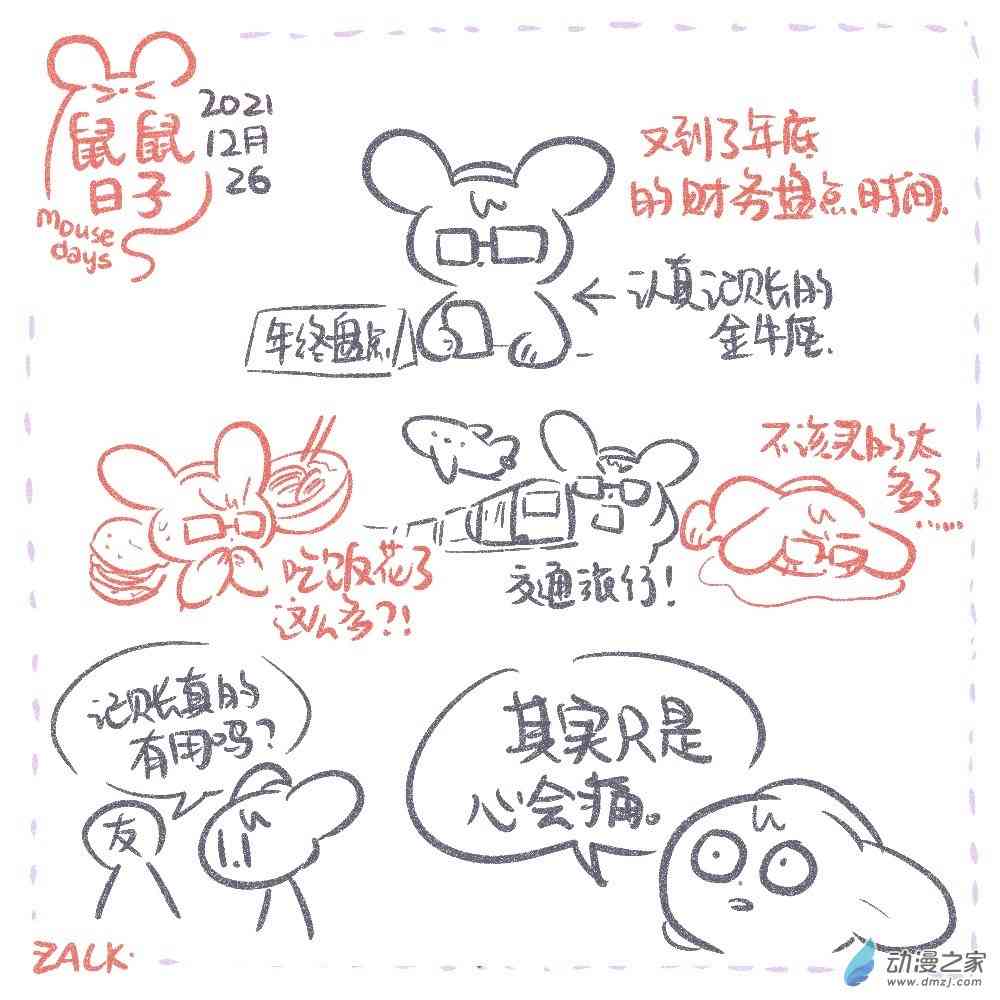 鼠鼠
日子
mouse
days
2021
12月
26
又到了年底
的财务盘点时间.
认真记账的
金牛座.
年终盘点
吃饭花了
这么多?!
交通旅行!
不该买的太
多了
......
记账真的
有用吗?
友
其实只是
心会痛。
ZALK.
动漫之家
www.dmzj.com